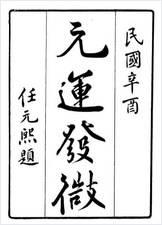 民國辛酉
元運發微
任元熙題